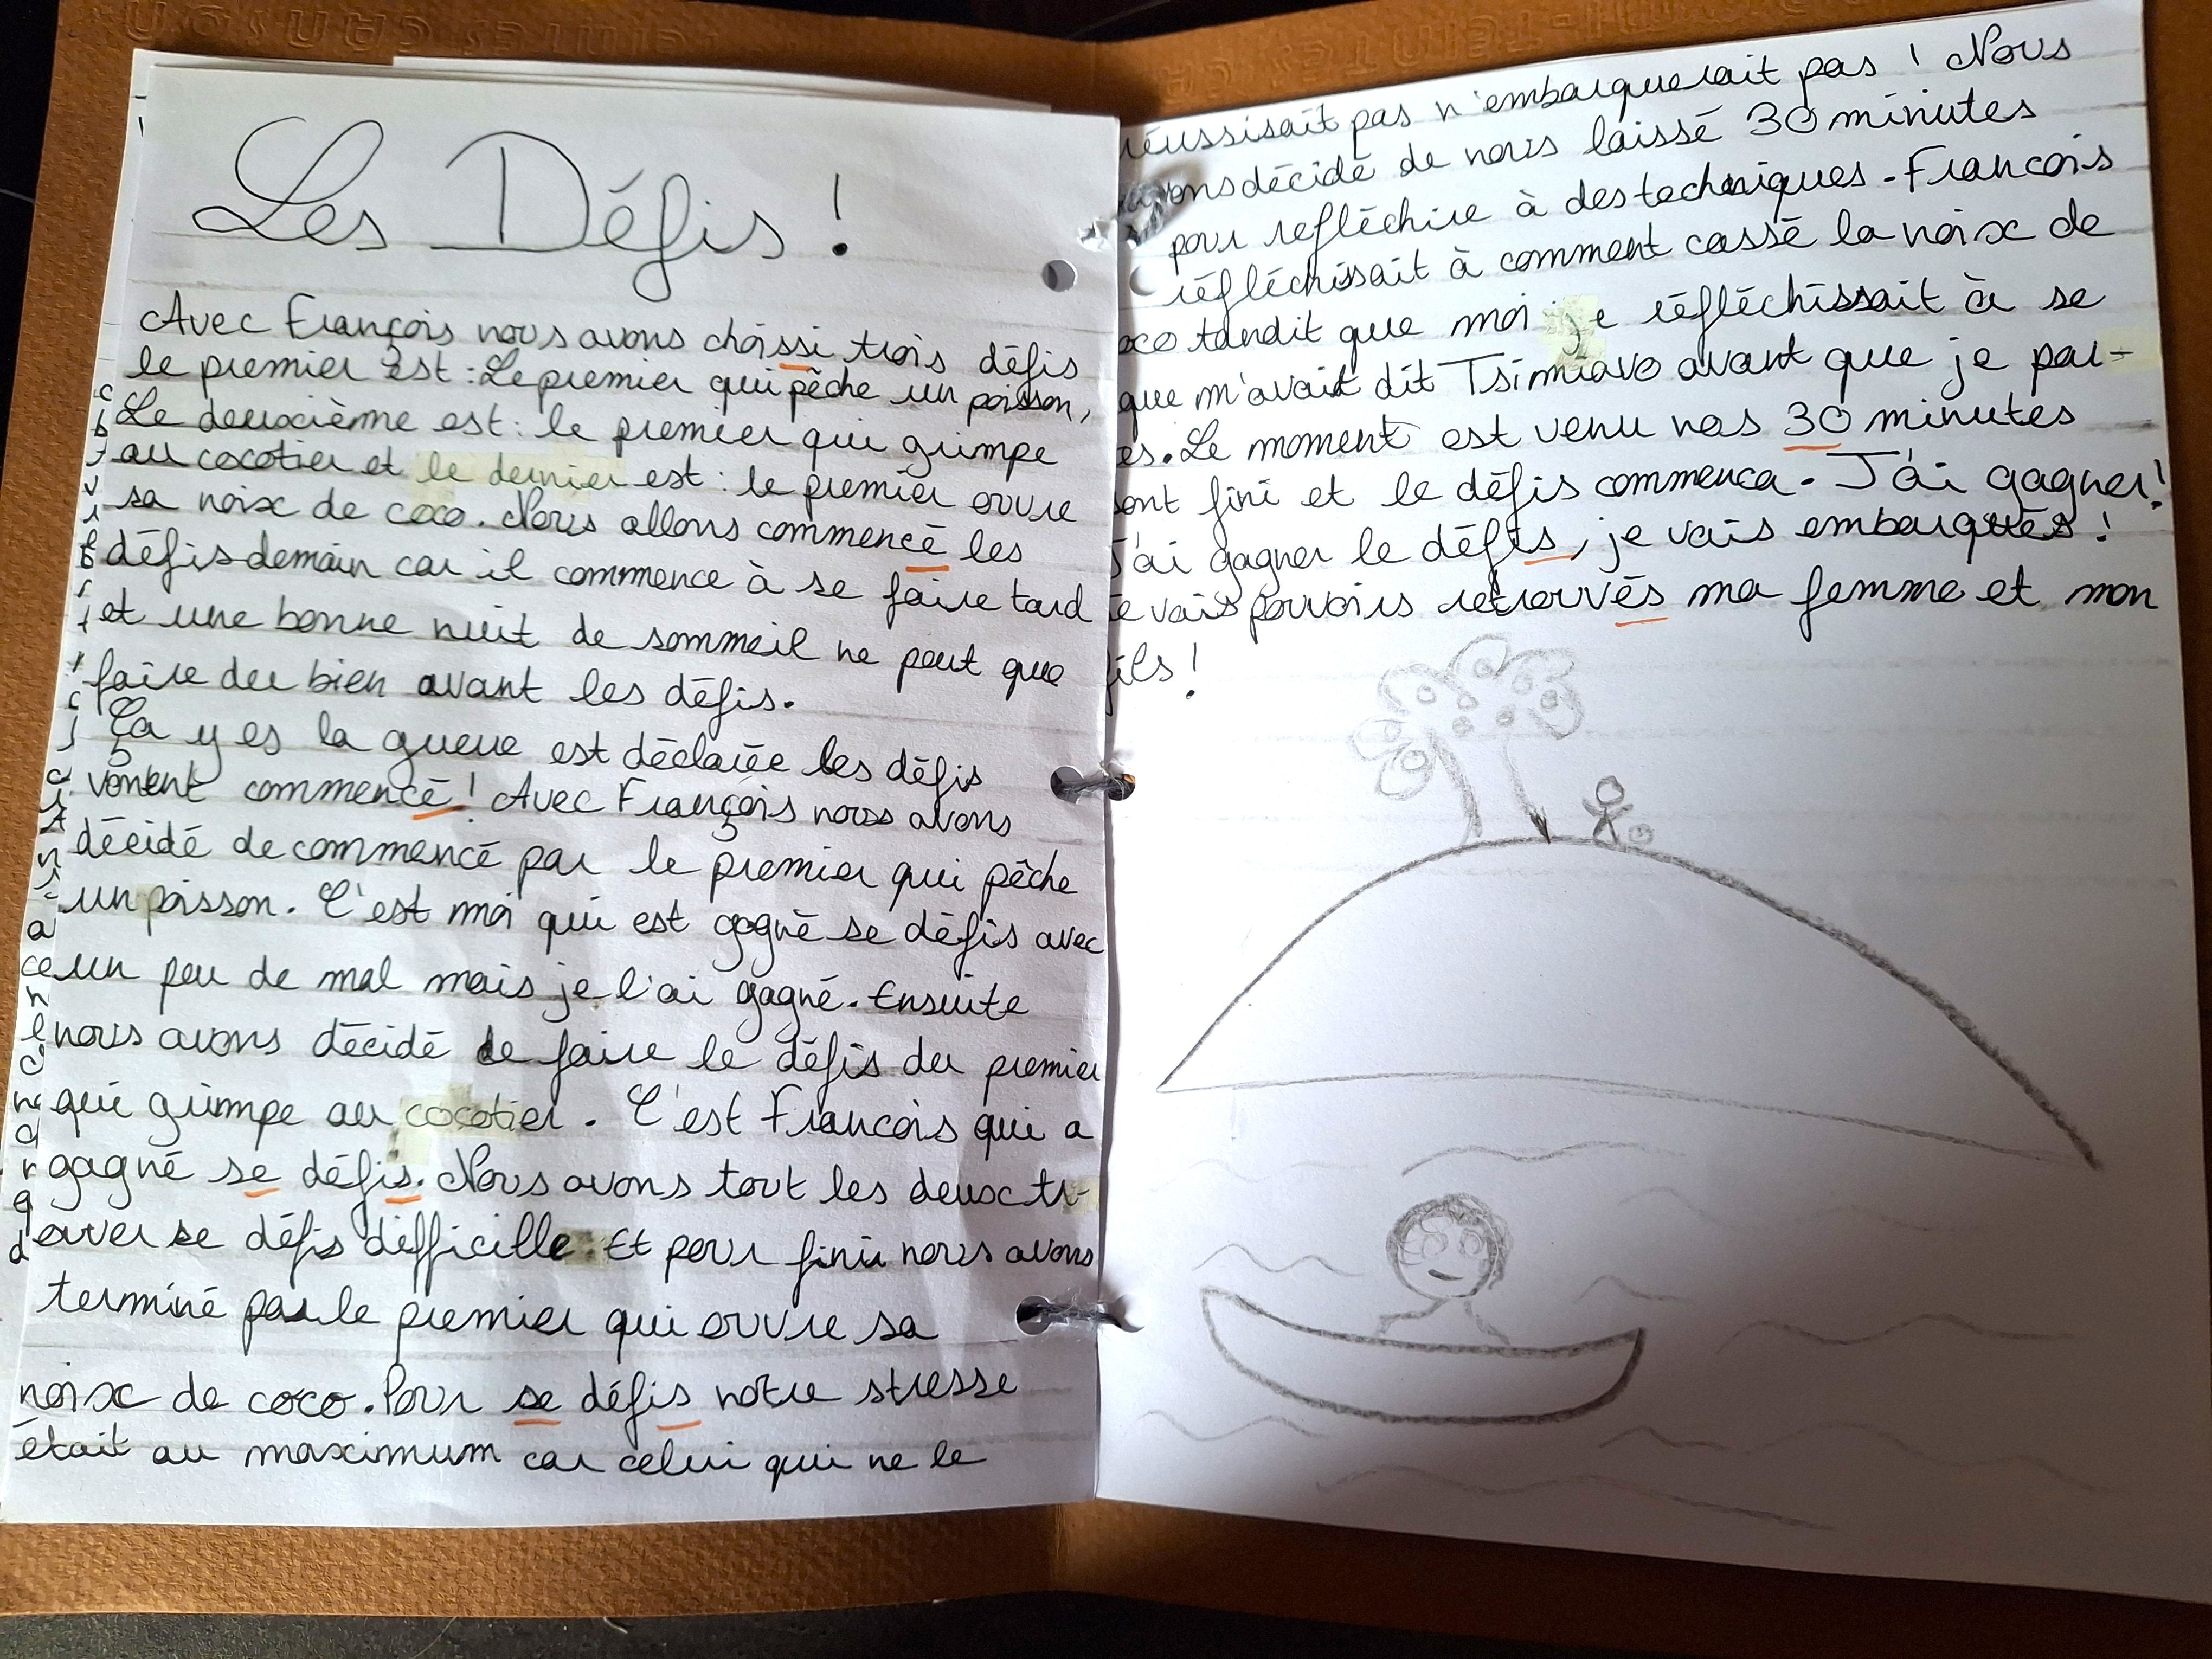 Les Défis !
Avec François nous avons choissi trois défis
le premier est : Le premier qui pêche un poisson,
Le deuxcième est : le premier qui grimpe
au cocotier et le dernier est : le premier ouvre
sa noix de coco. Nous allons commencé les
défis demain car il commence à se faire tard
et une bonne nuit de sommeil ne peut que
faire du bien avant les défis.
Ça y es la guerre est déclarée les défis
vontent commencé ! Avec François nous avons
décidé de commencé par le premier qui pêche
un poisson. C'est moi qui est gagné se défis avec
un peu de mal mais je l'ai gagné. Ensuite
nous avons décidé de faire le défis du premier
qui grimpe au cocotier. C'est Francois qui a
gagné se défis. Nous avons tout les deux tr-
ouver se défis difficille. Et pour finir nous avons
terminé par le premier qui ouvre sa
noix de coco. Pour se défis notre stresse
était au maximum car celui qui ne le
réussisait pas n'embarquerait pas ! Nous
avons décidé de nous laissé 30 minutes
pour refléchire à des techniques. Francois
réfléchissait à comment cassé la noix de
coco tandit que moi je réfléchissait à se
que m'avait dit Tsimiavo avant que je par-
es. Le moment est venu nos 30 minutes
sont fini et le défis commenca. J'ai gagner !
J'ai gagner le défis, je vais embarqués !
Je vais pouvoirs retrouvés ma femme et mon
fils !